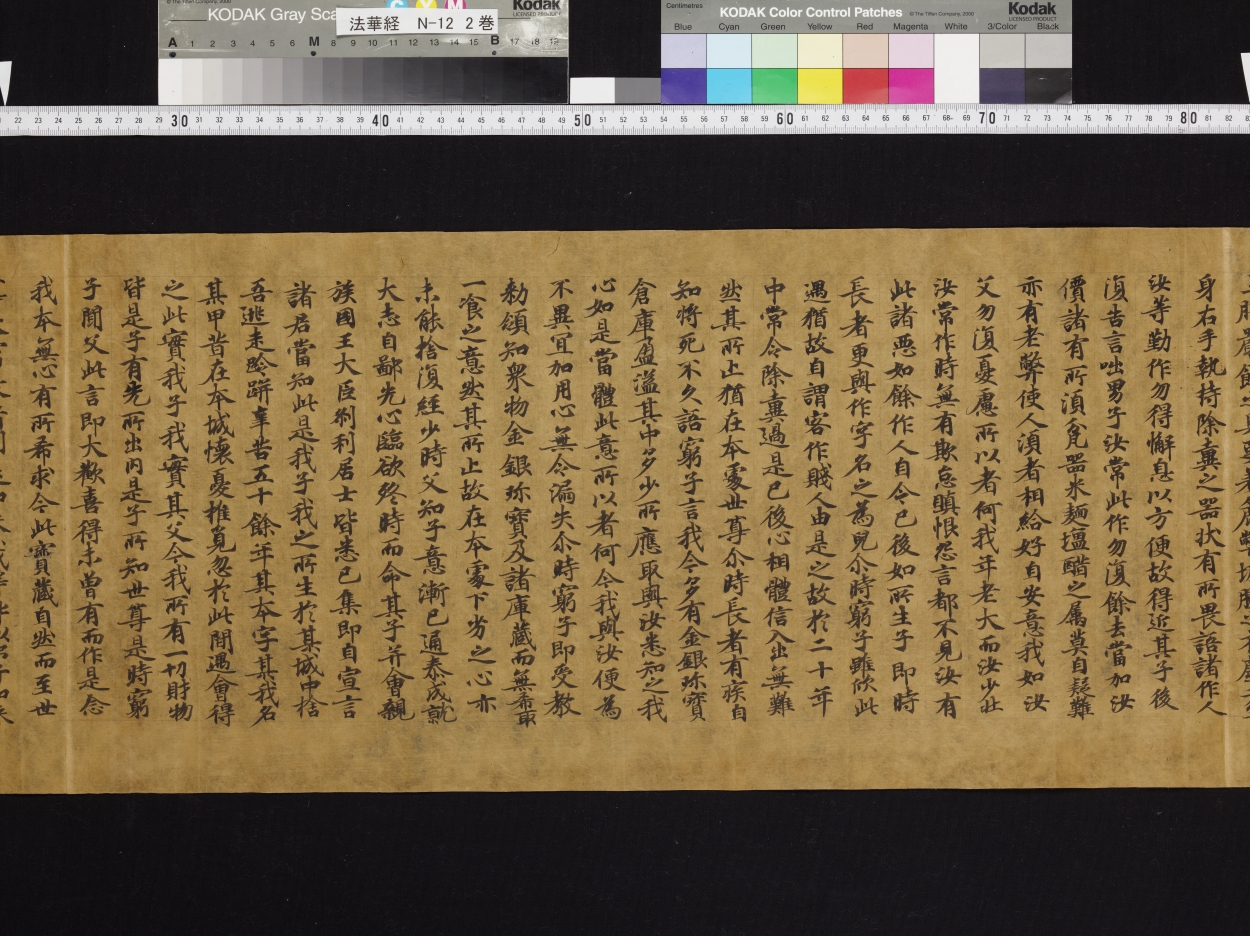 KODAK Gray
Kodak
LICENSED PRODUCT
法華経 N-12 2巻
C Y M
A 1 2 3 4 5 6 M 8 9 10 11 12 13 14 15 B 17 18 19
Centimetres
KODAK Color Control Patches
© The Tiffen Company, 2000
Kodak
LICENSED PRODUCT
Blue Cyan Green Yellow Red Magenta White 3/Color Black
身右手執持除糞之器狀有所畏語諸作人
汝等勤作勿得懈息以方便故得近其子後
復告言咄男子汝常此作勿復餘去當加汝
價諸有所湏瓫器米麵塩醋之属莫自疑難
亦有老弊使人湏者相給好自安意我如汝
父勿復憂慮所以者何我年老大而汝少壮
汝常作時無有欺怠瞋恨怨言都不見汝有
此諸惡如餘作人自今已後如所生子即時
長者更與作字名之為兒尒時窮子雖欣此
遇猶故自謂客作賤人由是之故於二十年
中常令除糞過是已後心相體信入出無難
然其所止猶在本處世尊尒時長者有疾自
知將死不久語窮子言我今多有金銀珎寶
倉庫盈溢其中多少所應取與汝悉知之我
心如是當體此意所以者何今我與汝便為
不異宜加用心無令漏失尒時窮子即受教
勑領知衆物金銀珎寶及諸庫藏而無希取
一飡之意然其所止故在本處下劣之心亦
未能捨復經少時父知子意漸已通泰成就
大志自鄙先心臨欲終時而命其子并會親
族國王大臣刹利居士皆悉已集即自宣言
諸君當知此是我子我之所生於某城中捨
吾逃走跉跰辛苦五十餘年其本字某我名
某甲昔在本城懷憂推覓忽於此間遇會得
之此實我子我實其父今我所有一切財物
皆是子有先所出内是子所知世尊是時窮
子聞父此言即大歡喜得未曾有而作是念
我本無心有所希求今此寶藏自然而至世